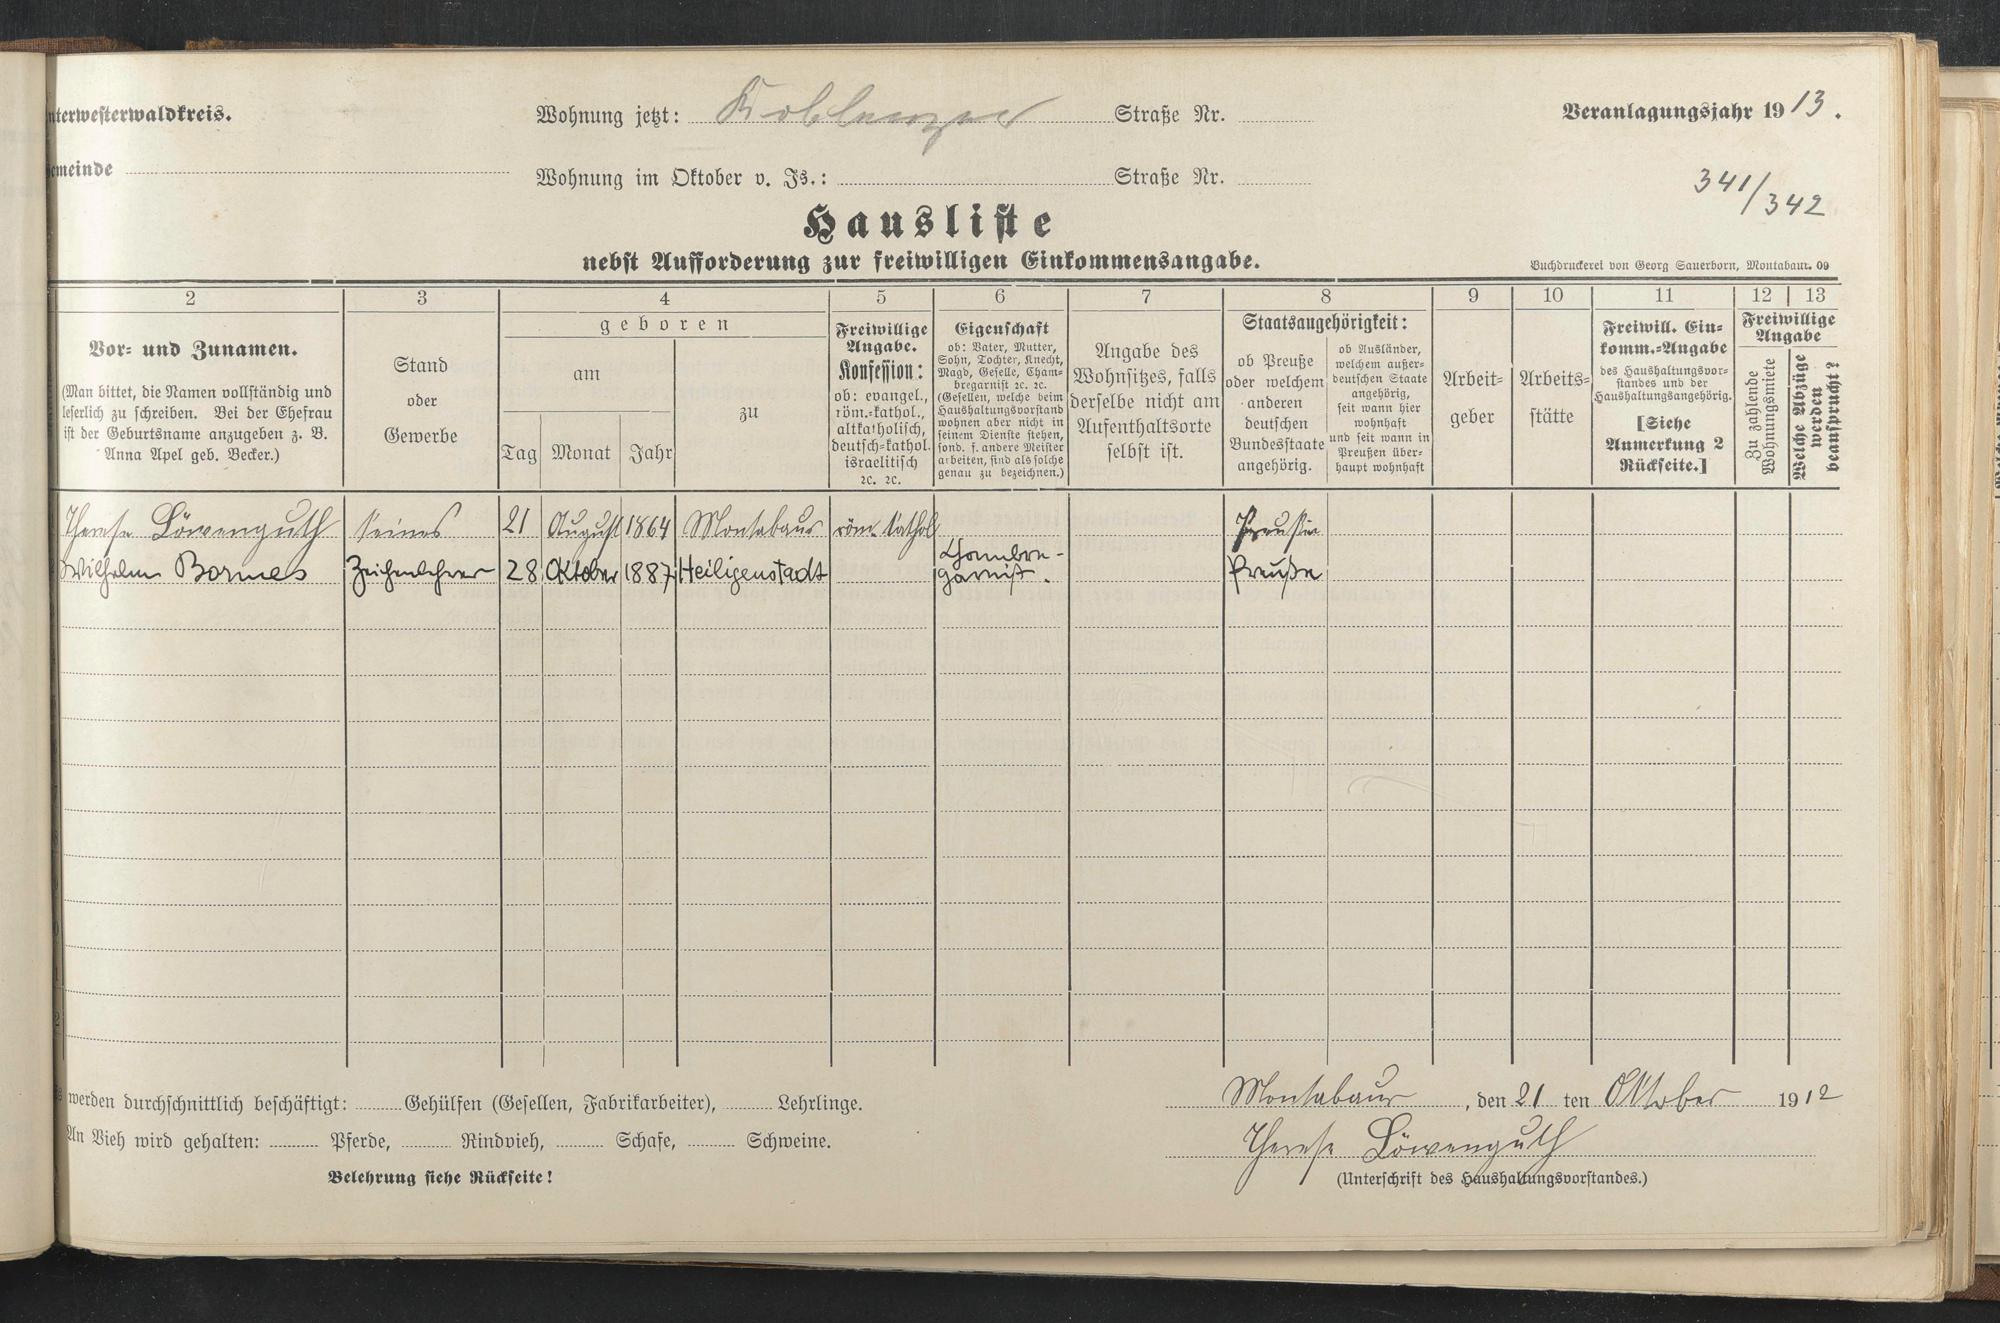 nterwesterwaldkreis.
Wohnung jetzt: Koblenzer Straße Nr.
Veranlagungsjahr 1913.
emeinde
Wohnung im Oktober v. Js.: Straße Nr.
341/342
Hausliste
nebst Aufforderung zur freiwilligen Einkommensangabe.
Buchdruckerei von Georg Sauerborn, Montabaur. 09
2 3 4 5 6 7 8 9 10 11 12 13
Vor- und Zunamen.
(Man bittet, die Namen vollständig und
leserlich zu schreiben. Bei der Ehefrau
ist der Geburtsname anzugeben z. B.
Anna Apel geb. Becker.)
Stand
oder
Gewerbe
geboren
am
Tag Monat Jahr
zu
Freiwillige
Angabe.
Konfession:
ob: evangel.,
röm.-kathol.,
altkatholisch,
deutsch-kathol.
israelitisch
2c. 2c.
Eigenschaft
ob: Vater, Mutter,
Sohn, Tochter, Knecht,
Magd, Geselle, Cham-
bregarnist 2c. 2c.
(Gesellen, welche beim
Haushaltungsvorstand
wohnen aber nicht in
seinem Dienste stehen,
sond. f. andere Meister
arbeiten, sind als solche
genau zu bezeichnen.)
Angabe des
Wohnsitzes, falls
derselbe nicht am
Aufenthaltsorte
selbst ist.
Staatsangehörigkeit:
ob Preuße
oder welchem
anderen
deutschen
Bundesstaate
angehörig.
ob Ausländer,
welchem außer-
deutschen Staate
angehörig,
seit wann hier
wohnhaft
und seit wann in
Preußen über-
haupt wohnhaft
Arbeit-
geber
Arbeits-
stätte
Freiwill. Ein-
komm.-Angabe
des Haushaltungsvor-
standes und der
Haushaltungsangehörig.
[Siehe
Anmerkung 2
Rückseite.]
Freiwillige
Angabe
Zu zahlende
Wohnungsmiete
Welche Abzüge
werden
beansprucht?
Therese Löwenguth 21 August 1864 Montabaur röm. kathol
Wilhelm Bormes Zeichenlehrer 28 Oktober 1887 Heiligenstadt Chambre-
garnist. Preuße
werden durchschnittlich beschäftigt: Gehülfen (Gesellen, Fabrikarbeiter), Lehrlinge.
An Vieh wird gehalten: Pferde, Rindvieh, Schafe, Schweine.
Belehrung siehe Rückseite!
Montabaur, den 21 ten Oktober 1912
Therese Löwenguth
(Unterschrift des Haushaltungsvorstandes.)